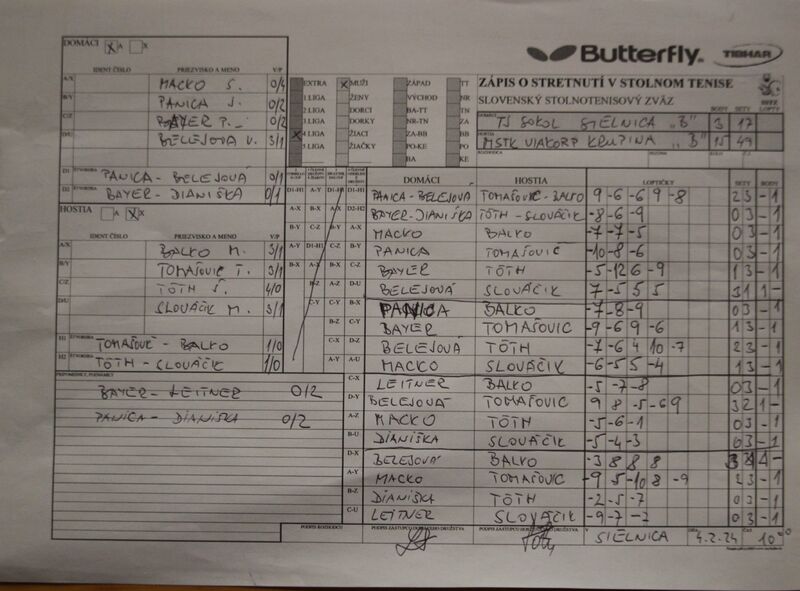 DOMÁCI X A X
IDENT ČÍSLO PRIEZVISKO A MENO V/P
A/X MACKO S. 0/4
B/Y PANICA J. 0/2
C/Z BAYER P. 0/2
D/U BELEJOVÁ V. 3/1
D1 ŠTVORHRA PANICA - BELEJOVÁ 0/1
D2 ŠTVORHRA BAYER - DIANIŠKA 0/1
HOSTIA A X X
IDENT ČÍSLO PRIEZVISKO A MENO V/P
A/X BALKO M. 3/1
B/Y TOMAŠOVIC T. 3/1
C/Z TÓTH Š. 4/0
D/U SLOVÁČIK M. 3/1
H1 ŠTVORHRA TOMAŠOVIC - BALKO 1/0
H2 ŠTVORHRA TÓTH - SLOVÁČIK 1/0
BAYER - LEITNER 0/2
PANICA - DIANIŠKA 0/2
Butterfly TIBHAR
EXTRA X MUŽI ZÁPAD TT
1 LIGA ŽENY VÝCHOD NR
2 LIGA DORCI BA-TT TN
3 LIGA DORKY NR-TN ZA
X 4 LIGA ŽIACI ZA-BB BB
5 LIGA ŽIAČKY PO-KE PO
BA KE
ZÁPIS O STRETNUTÍ V STOLNOM TENISE
SLOVENSKÝ STOLNOTENISOVÝ ZVÄZ
BODY SETY LOPTY
DOMÁCI TJ SOKOL SIELNICA "B" 3 17
HOSTIA MSTK VIAKORP KRUPINA "B" 15 49
DOMÁCI HOSTIA LOPTIČKY SETY BODY
PANICA-BELEJOVÁ TOMAŠOVIC-BALKO 9 -6 -6 9 -8 2 3 - 1
BAYER-DIANIŠKA TÓTH-SLOVÁČIK -8 -6 -9 0 3 - 1
MACKO BALKO -7 -7 -5 0 3 - 1
PANICA TOMAŠOVIC -10 -8 -6 0 3 - 1
BAYER TÓTH -5 -12 6 -9 1 3 - 1
BELEJOVÁ SLOVÁČIK 7 -5 5 5 3 1 1 -
PANICA BALKO -7 -8 -9 0 3 - 1
BAYER TOMAŠOVIC -9 -6 9 -6 1 3 - 1
BELEJOVÁ TÓTH -7 -6 4 10 -7 2 3 - 1
MACKO SLOVÁČIK -6 -5 5 -4 1 3 - 1
C-X LEITNER BALKO -5 -7 -8 0 3 - 1
D-Y BELEJOVÁ TOMAŠOVIC 9 8 -5 -6 9 3 2 1 -
A-Z MACKO TÓTH -5 -6 -1 0 3 - 1
B-U DIANIŠKA SLOVÁČIK -5 -4 -3 0 3 - 1
D-X BELEJOVÁ BALKO -3 8 8 8 3 1 1 -
A-Y MACKO TOMAŠOVIC -9 5 -10 8 -9 2 3 - 1
B-Z DIANIŠKA TÓTH -2 -5 -7 0 3 - 1
C-U LEITNER SLOVÁČIK -9 -7 -7 0 3 - 1
PODPIS ROZHODCU PODPIS ZÁSTUPCU DOMÁCEHO DRUŽSTVA PODPIS ZÁSTUPCU HOSŤUJÚCEHO DRUŽSTVA V SIELNICA DŇA 4.2.24 ČAS 10 00